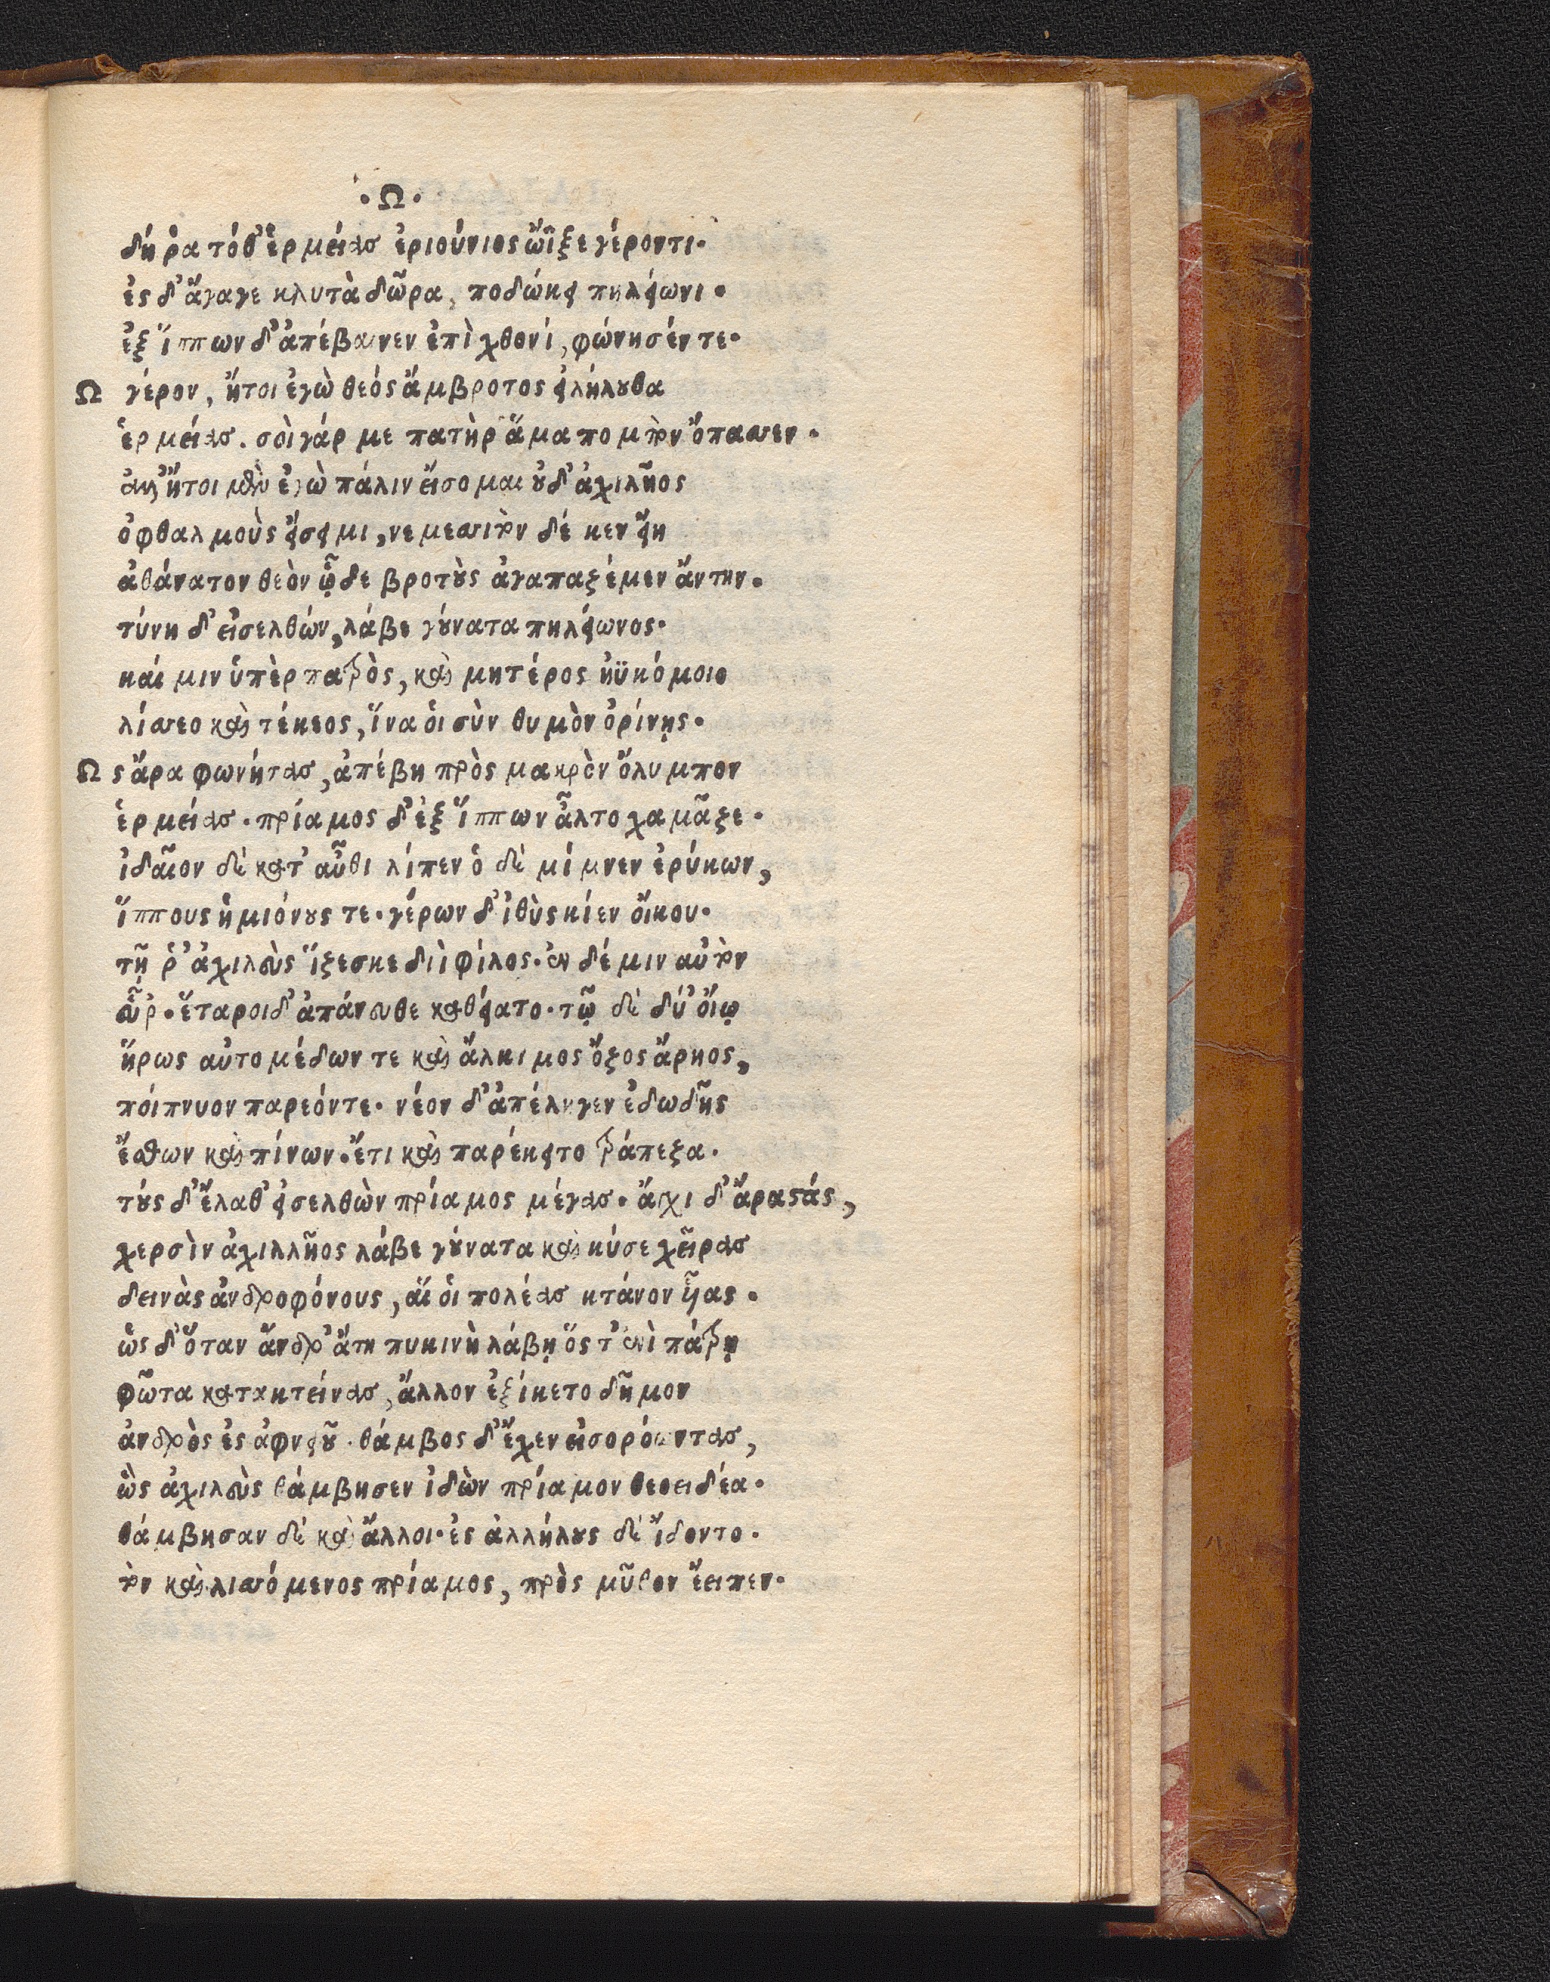 ·Ω·
δή ῥα τόθ' ἑρμείας ἐριούνιος ὤϊξε γέροντι·
ἐς δ' ἄγαγε κλυτὰ δῶρα, ποδώκει πηλείωνι·
ἐξ ἵππων δ' ἀπέβαινεν ἐπὶ χθονί, φώνησέν τε·
Ω γέρον, ἤτοι ἐγὼ θεός ἄμβροτος εἰλήλουθα
ἑρμείας. σοὶ γάρ με πατὴρ ἅμα πομπὸν ὄπασσεν·
ἀλλ' ἤτοι μὲν ἐγὼ πάλιν εἴσομαι οὐδ' ἀχιλῆος
ὀφθαλμοὺς εἴσειμι, νεμεσσιτὸν δέ κεν εἴη
ἀθάνατον θεὸν ᾧδε βροτοὺς ἀγαπαζέμεν ἄντην·
τύνη δ' εἰσελθών, λάβε γούνατα πηλείωνος·
καί μιν ὑπὲρ πατρὸς, καὶ μητέρος ἠϋκόμοιο
λίσσεο καὶ τέκεος, ἵνα οἱ σὺν θυμὸν ὀρίνῃς·
Ως ἄρα φωνήτας, ἀπέβη πρὸς μακρὸν ὄλυμπον
ἑρμείας· πρίαμος δ' ἐξ ἵππων ἆλτο χαμᾶζε·
ἰδαῖον δὲ κατ' αὖθι λίπεν ὁ δὲ μίμνεν ἐρύκων,
ἵππους ἡμιόνους τε· γέρων δ' ἰθὺς κίεν οἴκου·
τῇ ῥ' ἀχιλεὺς ἵζεσκε διὶ φίλος· ἐν δέ μιν αὐτὸν
εὗρ· ἕταροι δ' ἀπάνευθε καθείατο· τῷ δὲ δύ' οἴῳ
ἥρως αὐτομέδων τε καὶ ἄλκιμος ὄζος ἄρηος,
πόιπνυον παρεόντε· νέον δ' ἀπέληγεν ἐδωδῆς
ἔσθων καὶ πίνων· ἔτι καὶ παρέκειτο τράπεζα·
τοὺς δ' ἔλαθ' εἰσελθὼν πρίαμος μέγας· ἄγχι δ' ἄρα στάς,
χερσὶν ἀχιλλῆος λάβε γούνατα καὶ κύσε χεῖρας
δεινὰς ἀνδροφόνους, αἵ οἱ πολέας κτάνον υἷας·
ὡς δ' ὅταν ἄνδρ' ἄτη πυκινὴ λάβῃ ὅς τ' ἐνὶ πάτρῃ
φῶτα κατακτείνας, ἄλλον ἐξίκετο δῆμον
ἀνδρὸς ἐς ἀφνειοῦ· θάμβος δ' ἔχεν εἰσορόωντας,
ὣς ἀχιλεὺς θάμβησεν ἰδὼν πρίαμον θεοειδέα·
θάμβησαν δὲ καὶ ἄλλοι· ἐς ἀλλήλους δὲ ἴδοντο·
τὸν καὶ λισσόμενος πρίαμος, πρὸς μῦθον ἔειπεν·